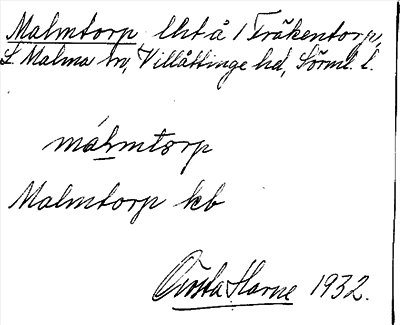 Malmtorp, lht å 1 Tråkentorp,
L. Malma sn, Villåttinge hd, Sörml. l.
málmtorp
Malmtorp kb
Gösta Harne 1932.